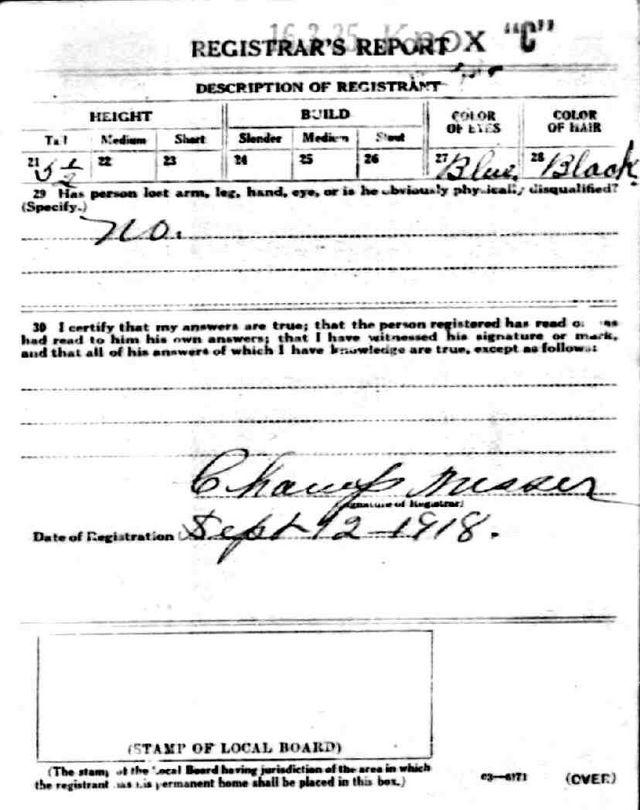 16 3 35 Knox "C"
REGISTRAR'S REPORT
DESCRIPTION OF REGISTRANT
HEIGHT BUILD COLOR OF EYES COLOR OF HAIR
Tall Medium Short Slender Medium Stout
21 5 1/2 22 23 24 25 26 27 Blue 28 Black
29 Has person lost arm, leg, hand, eye, or is he obviously physically disqualified?
(Specify.)
No.
30 I certify that my answers are true; that the person registered has read or has
had read to him his own answers; that I have witnessed his signature or mark,
and that all of his answers of which I have knowledge are true, except as follows:
Messer
(Signature of Registrar)
Date of Registration Sept 12 - 1918.
(STAMP OF LOCAL BOARD)
(The stamp of the Local Board having jurisdiction of the area in which
the registrant has his permanent home shall be placed in this box.)
03—6171 (OVER)